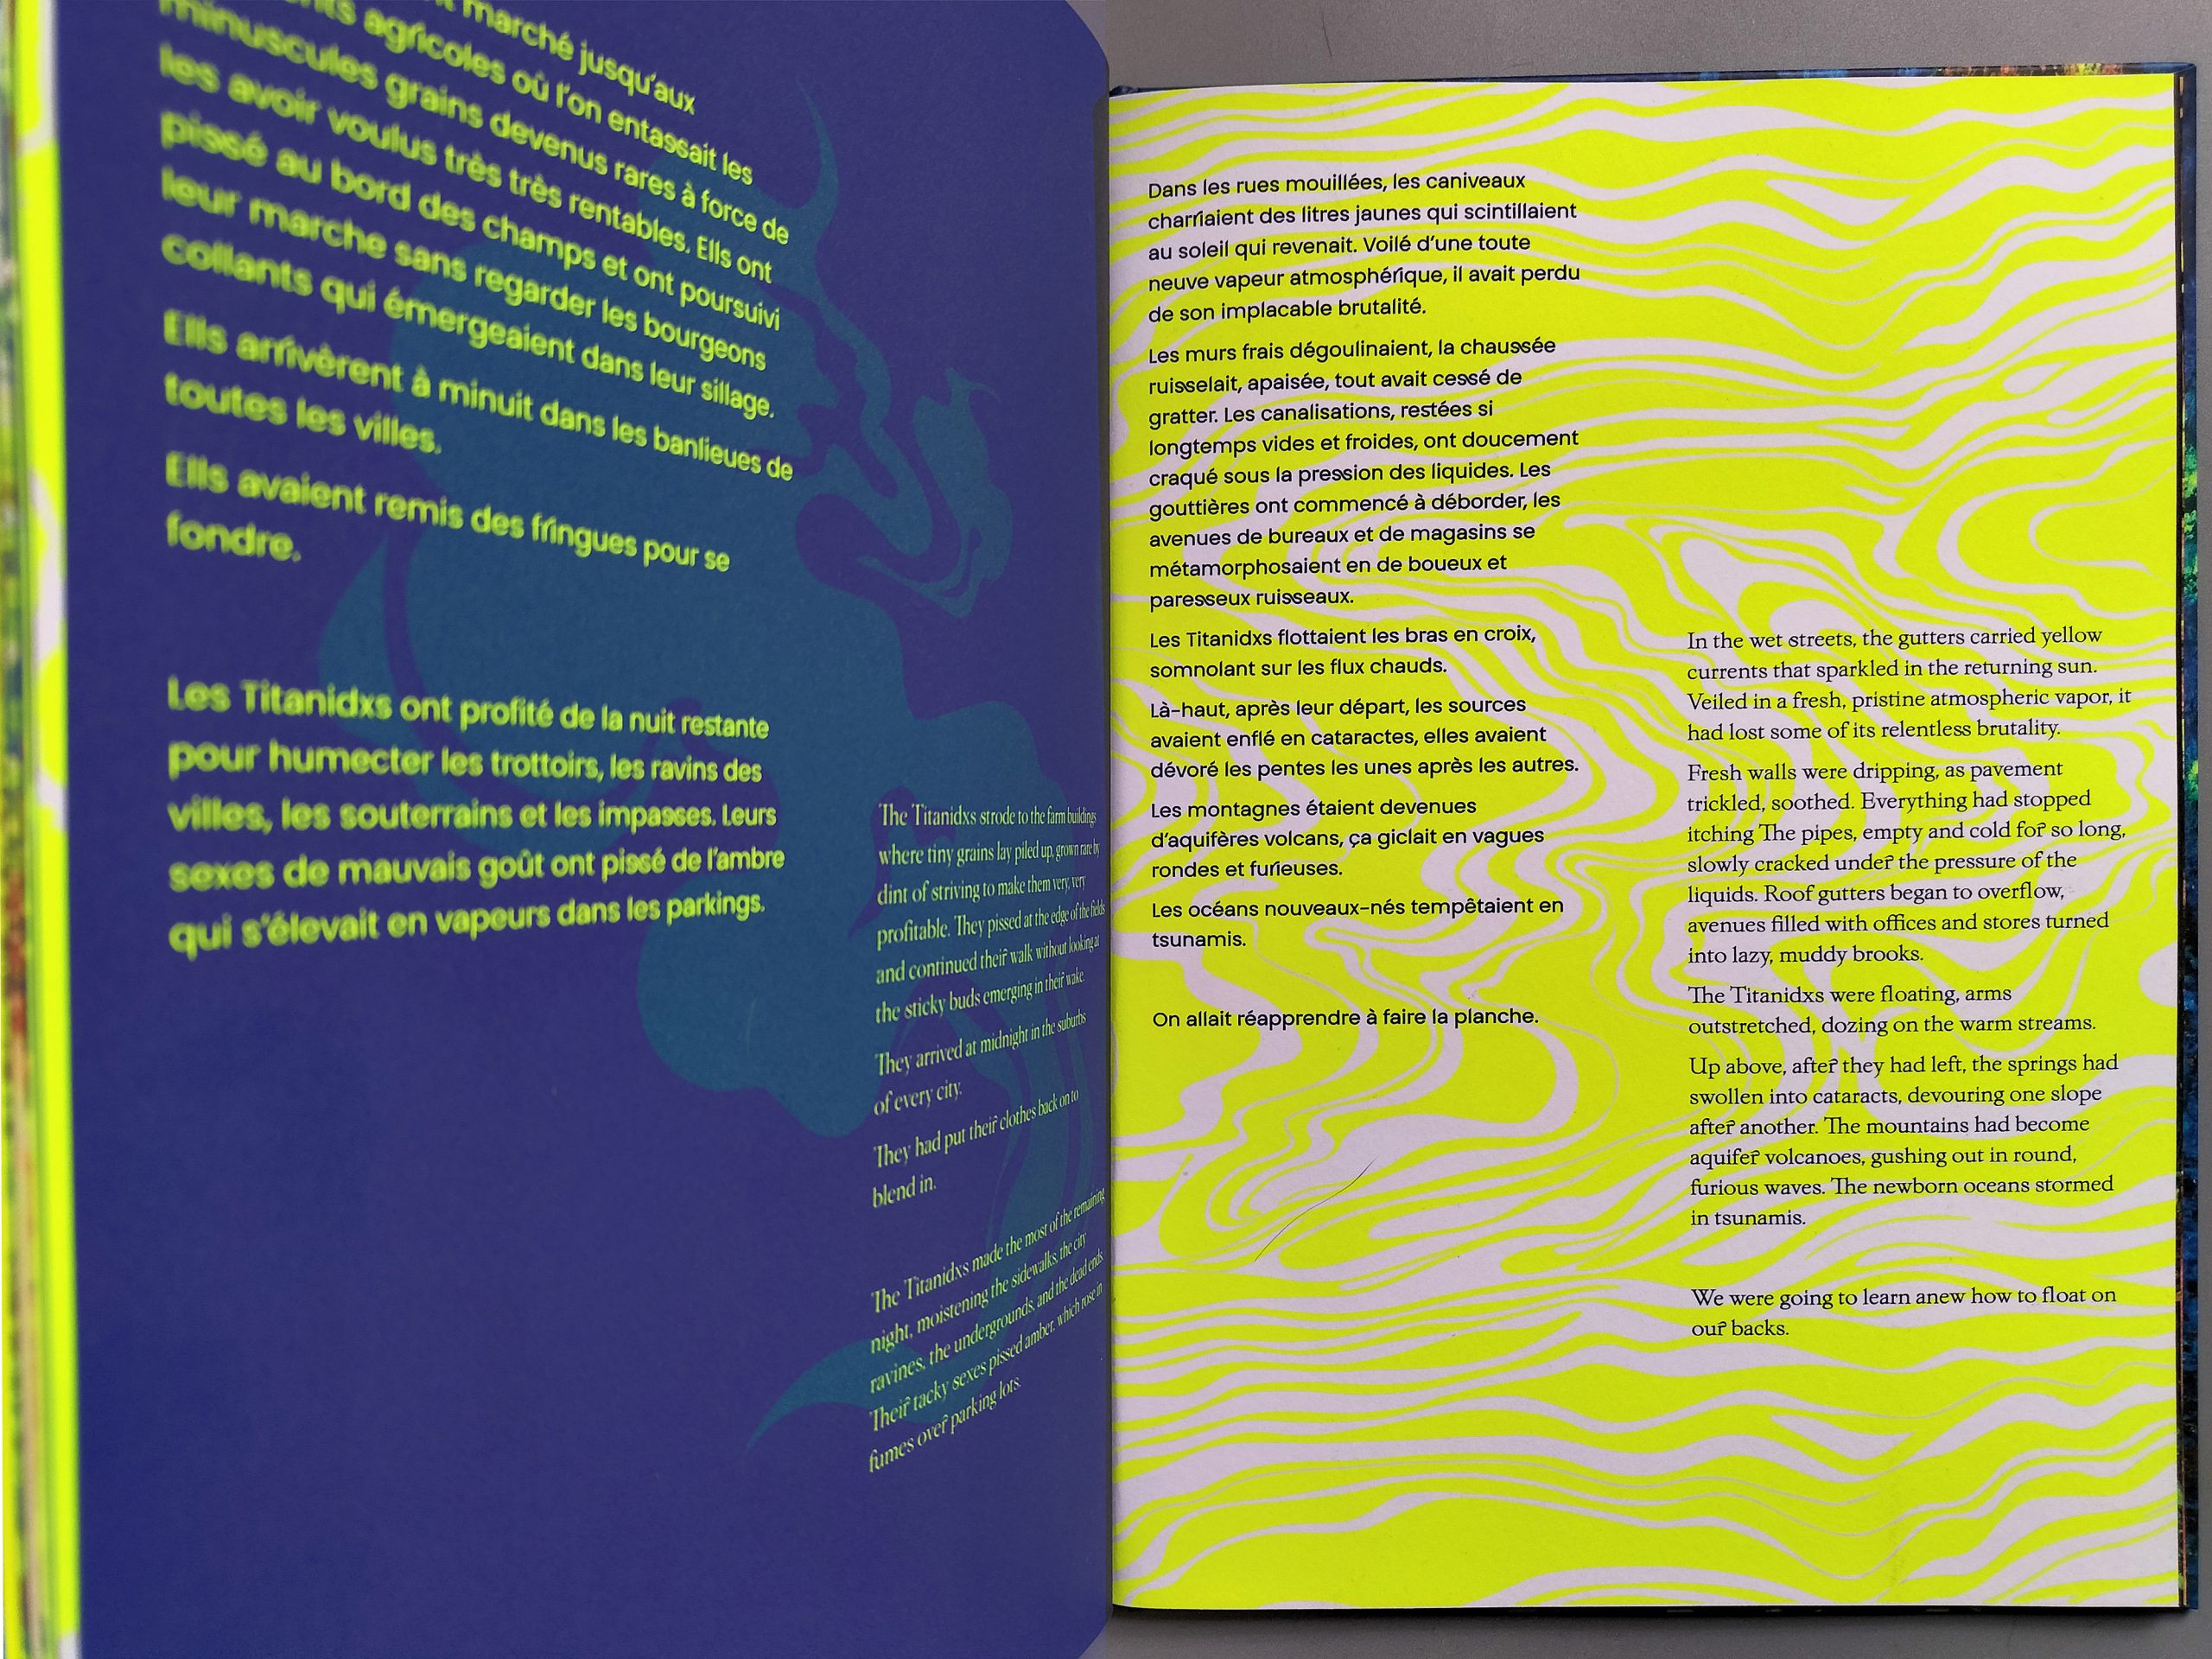 marché jusqu'aux
agricoles où l'on entassait les
minuscules grains devenus rares à force de
les avoir voulus très très rentables. Ells ont
pissé au bord des champs et ont poursuivi
leur marche sans regarder les bourgeons
collants qui émergeaient dans leur sillage.
Ells arrivèrent à minuit dans les banlieues de
toutes les villes.
Ells avaient remis des fringues pour se
fondre.
Les Titanidxs ont profité de la nuit restante
pour humecter les trottoirs, les ravins des
villes, les souterrains et les impasses. Leurs
sexes de mauvais goût ont pissé de l'ambre
qui s'élevait en vapeurs dans les parkings.
The Titanidxs strode to the farm buildings
where tiny grains lay piled up, grown rare by
dint of striving to make them very, very
profitable. They pissed at the edge of the fields
and continued their walk without looking at
the sticky buds emerging in their wake.
They arrived at midnight in the suburbs
of every city.
They had put their clothes back on to
blend in.
The Titanidxs made the most of the remaining
night, moistening the sidewalks, the city
ravines, the undergrounds, and the dead ends.
Their tacky sexes pissed amber, which rose in
fumes over parking lots.
Dans les rues mouillées, les caniveaux
charriaient des litres jaunes qui scintillaient
au soleil qui revenait. Voilé d'une toute
neuve vapeur atmosphérique, il avait perdu
de son implacable brutalité.
Les murs frais dégoulinaient, la chaussée
ruisselait, apaisée, tout avait cessé de
gratter. Les canalisations, restées si
longtemps vides et froides, ont doucement
craqué sous la pression des liquides. Les
gouttières ont commencé à déborder, les
avenues de bureaux et de magasins se
métamorphosaient en de boueux et
paresseux ruisseaux.
Les Titanidxs flottaient les bras en croix,
somnolant sur les flux chauds.
Là-haut, après leur départ, les sources
avaient enflé en cataractes, elles avaient
dévoré les pentes les unes après les autres.
Les montagnes étaient devenues
d'aquifères volcans, ça giclait en vagues
rondes et furieuses.
Les océans nouveaux-nés tempêtaient en
tsunamis.
On allait réapprendre à faire la planche.
In the wet streets, the gutters carried yellow
currents that sparkled in the returning sun.
Veiled in a fresh, pristine atmospheric vapor, it
had lost some of its relentless brutality.
Fresh walls were dripping, as pavement
trickled, soothed. Everything had stopped
itching The pipes, empty and cold for so long,
slowly cracked under the pressure of the
liquids. Roof gutters began to overflow,
avenues filled with offices and stores turned
into lazy, muddy brooks.
The Titanidxs were floating, arms
outstretched, dozing on the warm streams.
Up above, after they had left, the springs had
swollen into cataracts, devouring one slope
after another. The mountains had become
aquifer volcanoes, gushing out in round,
furious waves. The newborn oceans stormed
in tsunamis.
We were going to learn anew how to float on
our backs.